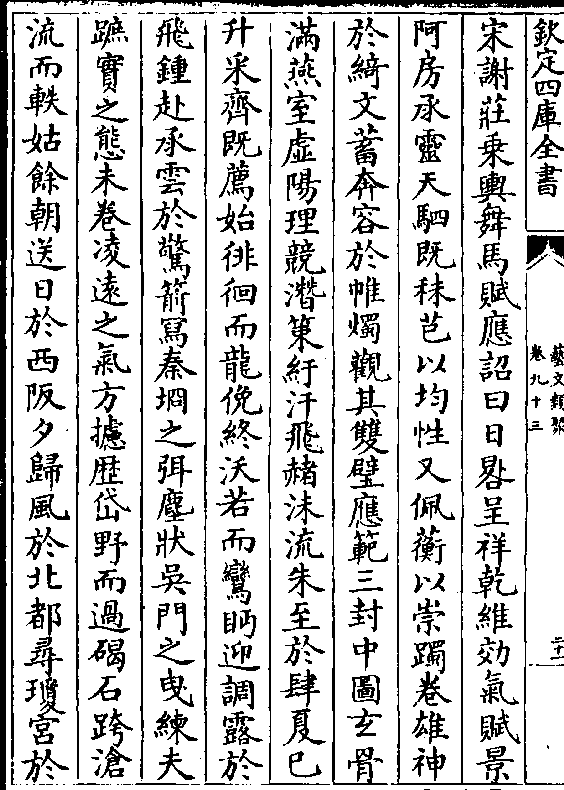 欽定四庫全書
藝文類聚
卷九十三
二十一
宋謝莊乗輿舞馬賦應詔曰日晷呈祥乾維効氣賦景
阿房承靈天駟既秣芑以均性又佩蘅以崇躅卷雄神
於綺文蓄奔容於帷燭觀其雙璧應範三封中圖玄骨
滿燕室虛陽理競潛策紆汗飛赭沫流朱至於肆夏已
升采齊既薦始徘徊而龍俛終沃若而鸞眄迎調露於
飛鍾赴承雲於驚箭冩秦坰之弭塵狀吳門之曵練夫
蹠實之態未卷凌遠之氣方攄歴岱野而過碣石跨滄
流而軼姑餘朝送日於西阪夕歸風於北都尋瓊宮於